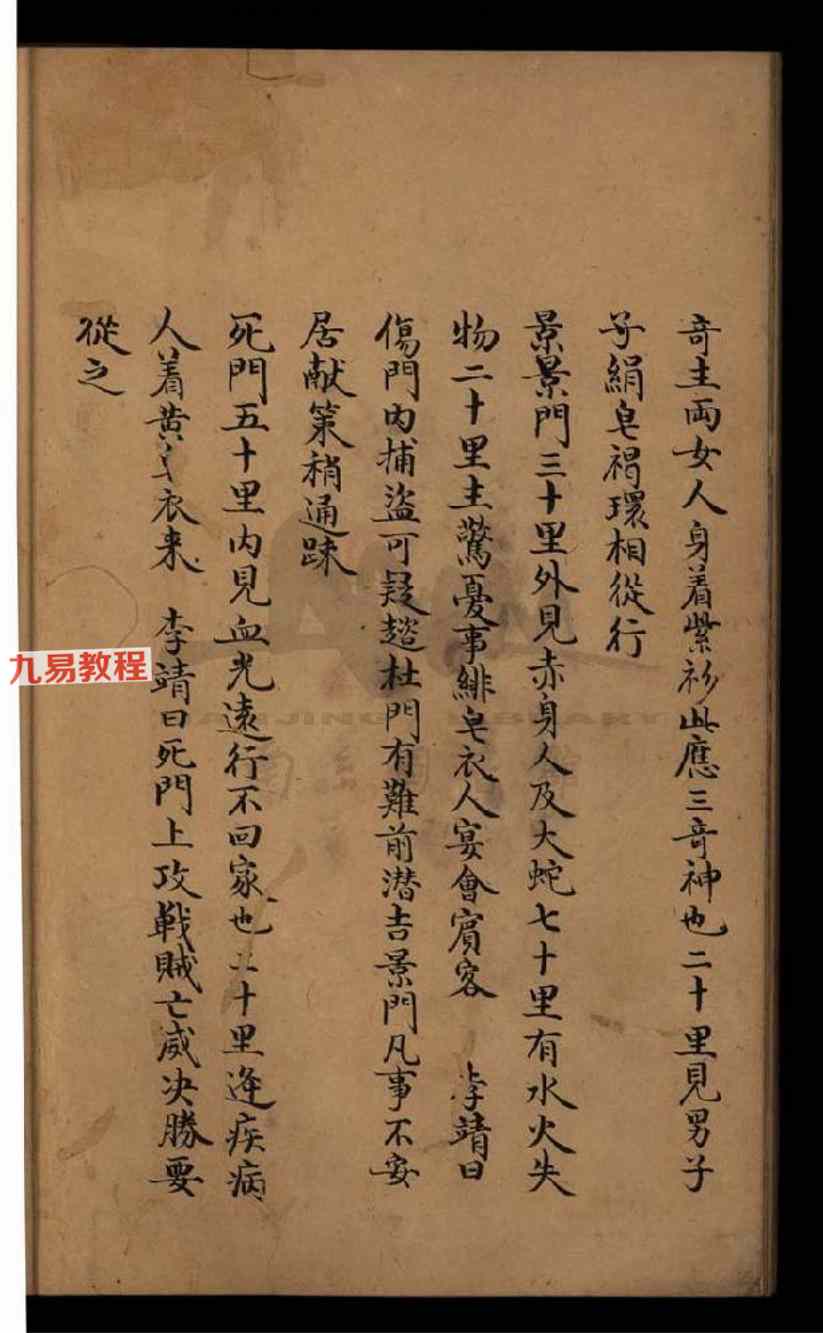 奇主兩女人身着紫衫此應三奇神也二十里見男子
子絹皂褐環相從行
景景門三十里外見赤身人及大蛇七十里有水火失
物二十里主驚憂事緋皂衣人宴會賓客 李靖曰
傷門內捕盜可疑趂杜門有難前潛吉景門凡事不安
居献策稍通踈
死門五十里內見血光遠行不回家也二十里逢疾病
人着黄衣来 李靖曰死門上攻戦賊亡威决勝要
從之
九易教程